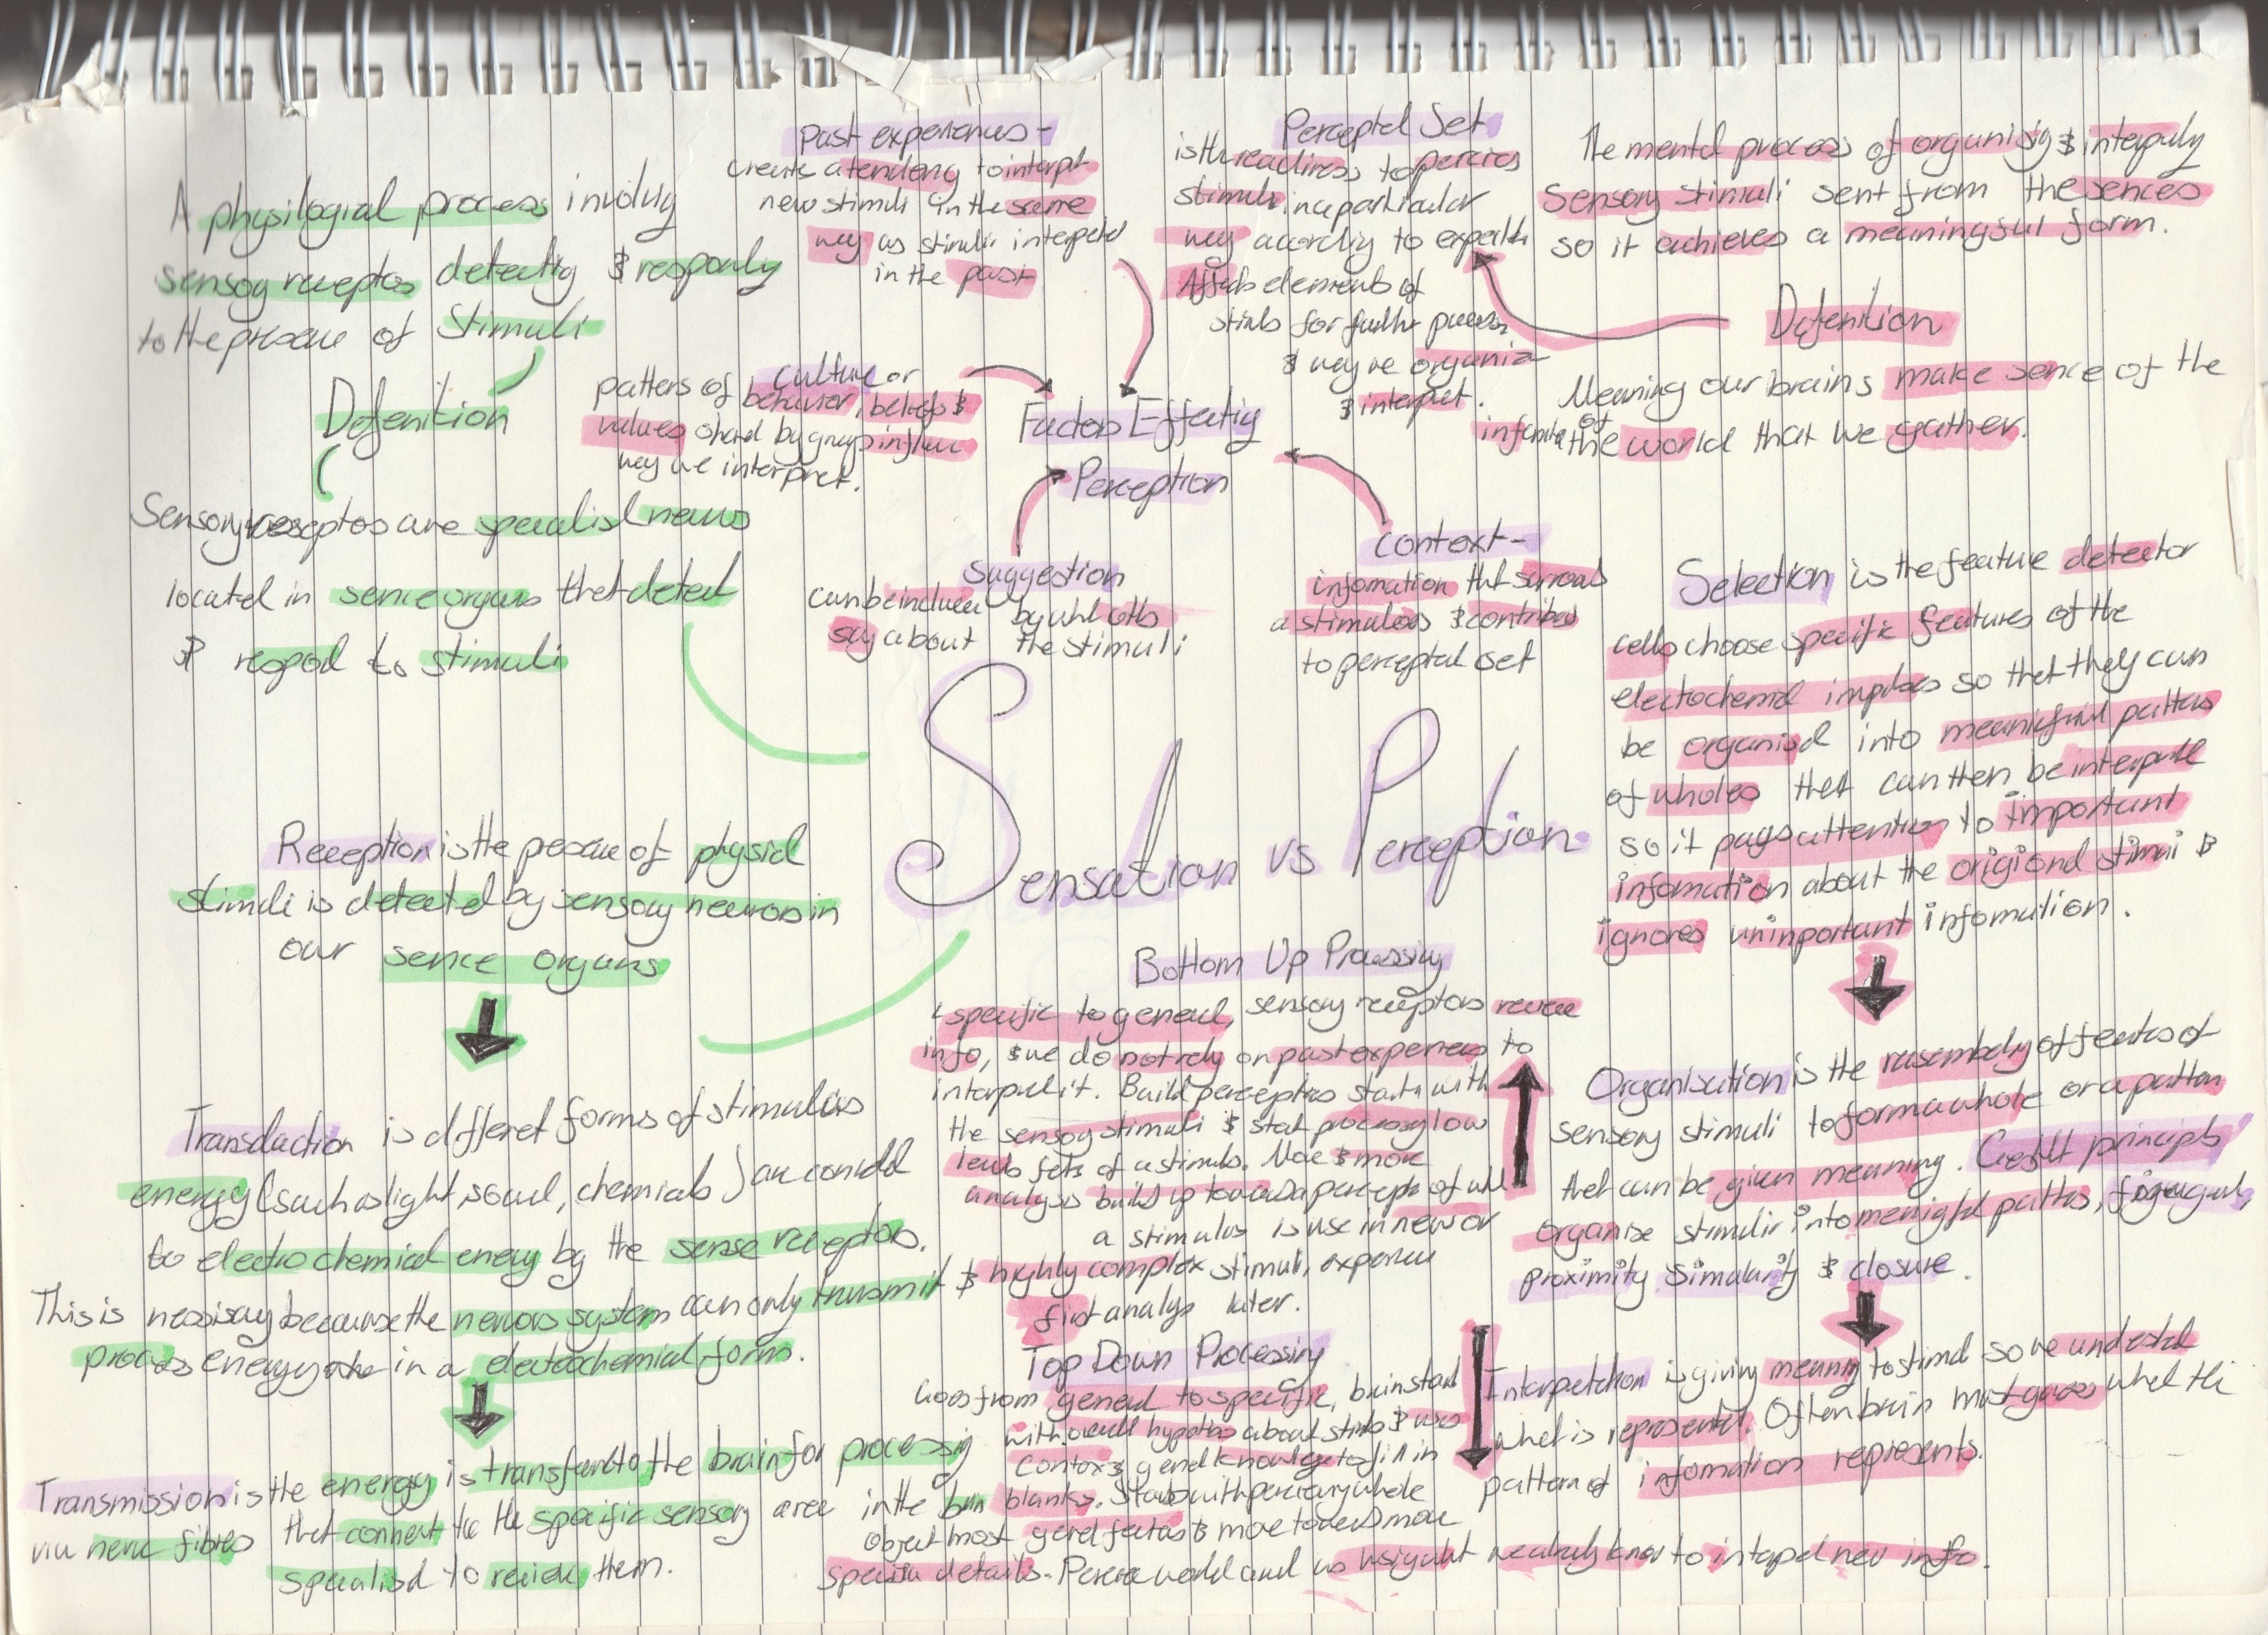 A physilogial process involvig
sensory receptos detectig & respondig
to the presence of stimuli
Defenition
Sensory receptos are specialisd neurons
located in sence organs that detect
& respod to stimuli
Reception is the presence of physical
stimuli is detected by sensory neurons in
our sence organs
Transduction is different forms of stimulus
energy (such as light, sound, chemicals) are converted
to electrochemical energy by the sense receptors.
This is necissay because the nervous system can only transmit &
process energy in a electrochemical form.
Transmission is the energy is transfered to the brain for processig
via nerve fibres that connect to the specific sensory area in the brain
specialisd to recieve them.
Past experiences -
create a tendency to interpret
new stimuli in the same
way as stimuli interpreted
in the past
culture or
patters of behavior, beliefs &
values shared by groups influence
way we interpret.
Factors Effectig
Perception
Suggestion
can be influenced by what others
say about the stimuli
Perceptual Set
is the readiness to percieve
stimuli in a particular
way accordig to
Affects elements of
stimuli for further process
& way we organise
& interpret.
Context -
infomation that surrounds
a stimulous & contributes
to perceptual set
Sensation vs Perception
Bottom Up Processing
specific to general, sensory receptors recieve
info, & we do not rely on past experiences to
interpret it. Build perceptions starts with
the sensory stimuli & start processing low
levels of a stimulus. More & more
analysis builds up towards a percepts of whole
a stimulus is use in new or
highly complex stimuli, experience
first analyse later.
Top Down Processing
Goes from general to specific, brain start
with overall hypothesis about stimulus & uses
context & general knowledge to fill in
blanks. Starts with percieving whole
object most general features & move towards more
specific details. to interpret new info.
The mental process of organisig & interpretig
sensory stimuli sent from the sences
so it achieves a meaningful form.
Defenition
Meaning our brains make sence of the
of the world that we gather.
Selection is the feature detector
cells choose specific features of the
electrochemical impulses so that they can
be organisd into meanigful patterns
of wholes that can then be interpreted
so it pays attention to important
infomation about the origional stimuli &
ignores uninportant infomation.
Organisation is the reasembely of features of
sensory stimuli to form a whole or a pattern
that can be given meaning. Gestalt principles
organise stimuli into meanigful patterns, figure ground,
proximity similarity & closure.
Interpretation is giving meaning to stimuli so we understand
what is represented. Often brain must guess what the
pattern of infomation represents.